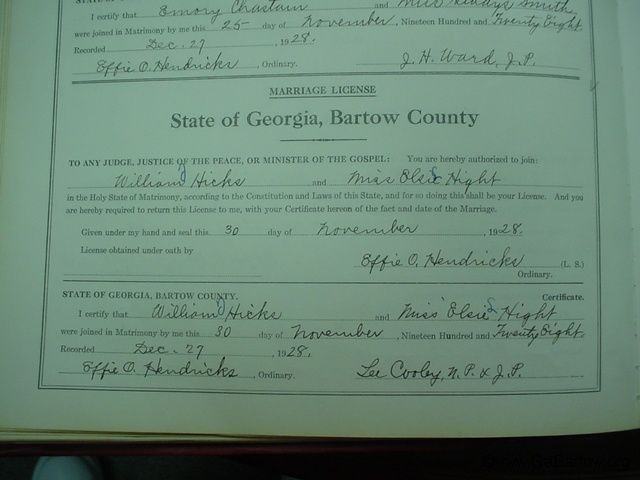 I certify that Emory Chastain and Miss Gladys Smith
were joined in Matrimony by me this 25 day of November, Nineteen Hundred and Twenty Eight.
Recorded Dec. 27, 1928.
Effie O. Hendricks, Ordinary. J. H. Ward, J.P.
MARRIAGE LICENSE
State of Georgia, Bartow County
TO ANY JUDGE, JUSTICE OF THE PEACE, OR MINISTER OF THE GOSPEL: You are hereby authorized to join:
William Hicks and Miss Elsie Hight
in the Holy State of Matrimony, according to the Constitution and Laws of this State, and for so doing this shall be your License. And you
are hereby required to return this License to me, with your Certificate hereon of the fact and date of the Marriage.
Given under my hand and seal this 30 day of November, 1928.
License obtained under oath by
Effie O. Hendricks (L. S.)
Ordinary.
STATE OF GEORGIA, BARTOW COUNTY. Certificate.
I certify that William Hicks and Miss Elsie Hight
were joined in Matrimony by me this 30 day of November, Nineteen Hundred and Twenty Eight.
Recorded Dec. 27, 1928.
Effie O. Hendricks, Ordinary. Lee Cooley, N. P. & J. P.